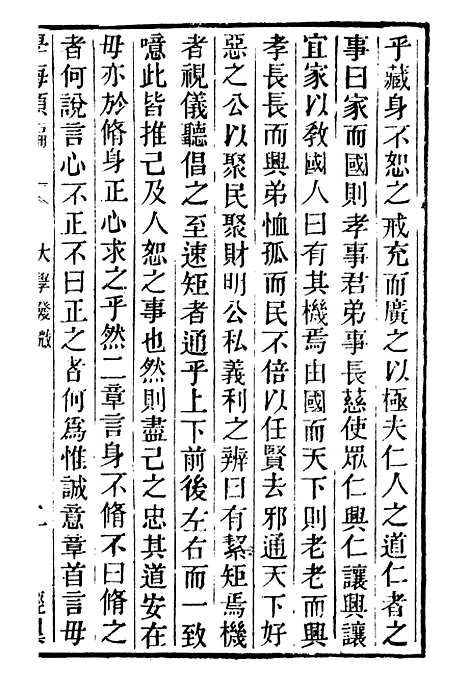 乎藏身不恕之戒充而廣之以極夫仁人之道仁者之
事曰家而國則孝事君弟事長慈使眾仁興仁讓興讓
宜家以敎國人曰有其機焉由國而天下則老老而興
孝長長而興弟恤孤而民不倍以任賢去邪通天下好
惡之公以聚民聚財明公私義利之辨曰有絜矩焉機
者視儀聽倡之至速矩者通乎上下前後左右而一致
噫此皆推己及人恕之事也然則盡己之忠其道安在
毋亦於脩身正心求之乎然二章言身不脩不曰脩之
者何說言心不正不曰正之者何爲惟誠意章首言毋
大學發微